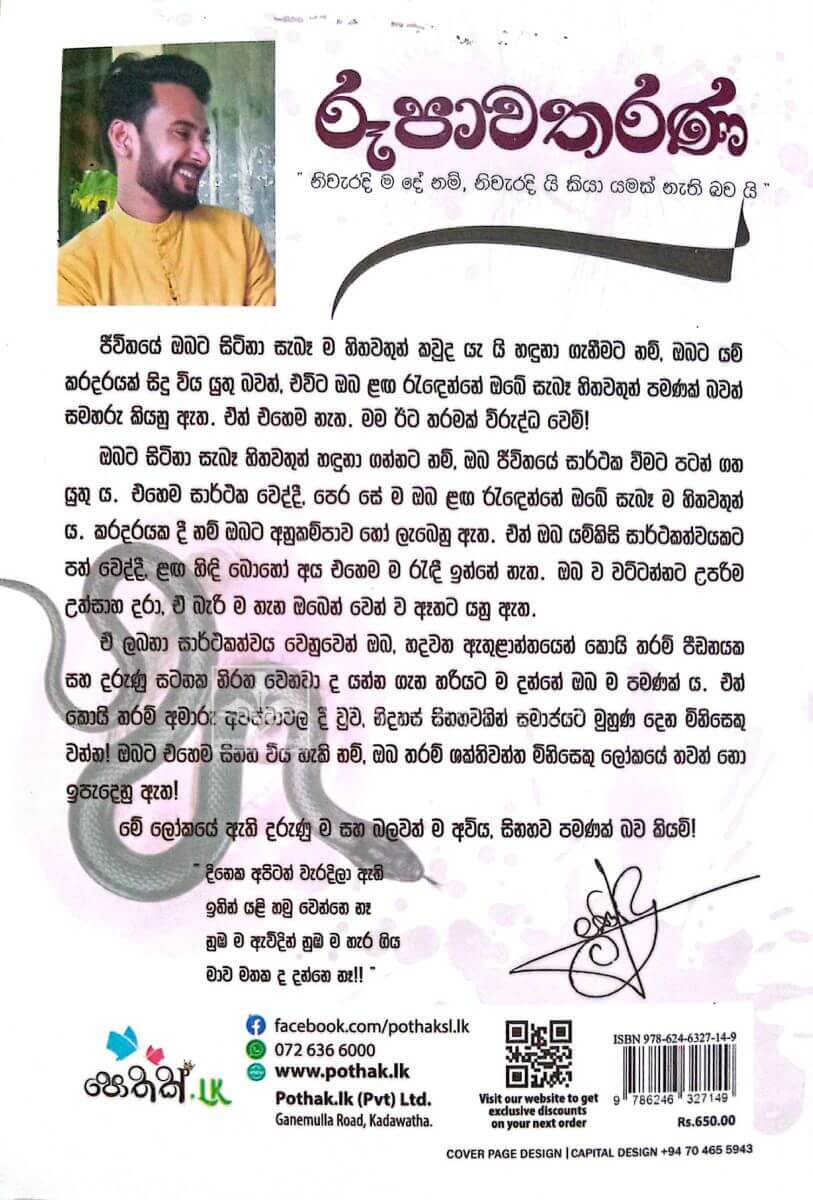 රූපාවතරණ
" නිවැරදි ම දේ නම්, නිවැරදි යි කියා යමක් නැති බව යි "
ජීවිතයේ ඔබට සිටිනා සැබෑ ම හිතවතුන් කවුද යැ යි හඳුනා ගැනීමට නම්, ඔබට යම්
කරදරයක් සිදු විය යුතු බවත්, එවිට ඔබ ළඟ රැඳෙන්නේ ඔබේ සැබෑ හිතවතුන් පමණක් බවත්
සමහරු කියනු ඇත. ඒත් එහෙම නැත. මම ඊට තරමක් විරුද්ධ වෙමි!
ඔබට සිටිනා සැබෑ හිතවතුන් හඳුනා ගන්නට නම්, ඔබ ජීවිතයේ සාර්ථක වීමට පටන් ගත
යුතු ය. එහෙම සාර්ථක වෙද්දී, පෙර සේ ම ඔබ ළඟ රැඳෙන්නේ ඔබේ සැබෑ ම හිතවතුන්
ය. කරදරයක දී නම් ඔබට අනුකම්පාව හෝ ලැබෙනු ඇත. ඒත් ඔබ යම්කිසි සාර්ථකත්වයකට
පත් වෙද්දී, ළඟ හිඳි බොහෝ අය එහෙම ම රැඳී ඉන්නේ නැත. ඔබ ව වට්ටන්නට උපරිම
උත්සාහ දරා, ඒ බැරි ම තැන ඔබෙන් වෙන් ව ඈතට යනු ඇත.
ඒ ලබනා සාර්ථකත්වය වෙනුවෙන් ඔබ, හදවත ඇතුළාන්තයෙන් කොයි තරම් පීඩනයක
සහ දරුණු සටනක නිරත වෙනවා ද යන්න ගැන හරියට ම දන්නේ ඔබ ම පමණක් ය. ඒත්
කොයි තරම් අමාරු අවස්ථාවල දී වුව, නිදහස් සිනහවකින් සමාජයට මුහුණ දෙන මිනිසෙකු
වන්න! ඔබට එහෙම සිනහ විය හැකි නම්, ඔබ තරම් ශක්තිවන්ත මිනිසෙකු ලෝකයේ තවත් නො
ඉපැදෙනු ඇත!
මේ ලෝකයේ ඇති දරුණු ම සහ බලවත් ම අවිය, සිනහව පමණක් බව කියමි!
" දිනෙක අපිටත් වැරදිලා ඇති
ඉතින් යළි හමු වෙන්නෙ නෑ
නුඹ ම ඇවිදින් නුඹ ම හැර ගිය
මාව මතක ද දන්නෙ නෑ!! "
facebook.com/pothaksl.lk
072 636 6000
www.pothak.lk
Pothak.lk (Pvt) Ltd.
Ganemulla Road, Kadawatha.
පොතක්.LK
Visit our website to get
exclusive discounts
on your next order
ISBN 978-624-6327-14-9
9 786246 327149
Rs.650.00
COVER PAGE DESIGN | CAPITAL DESIGN +94 70 465 5943